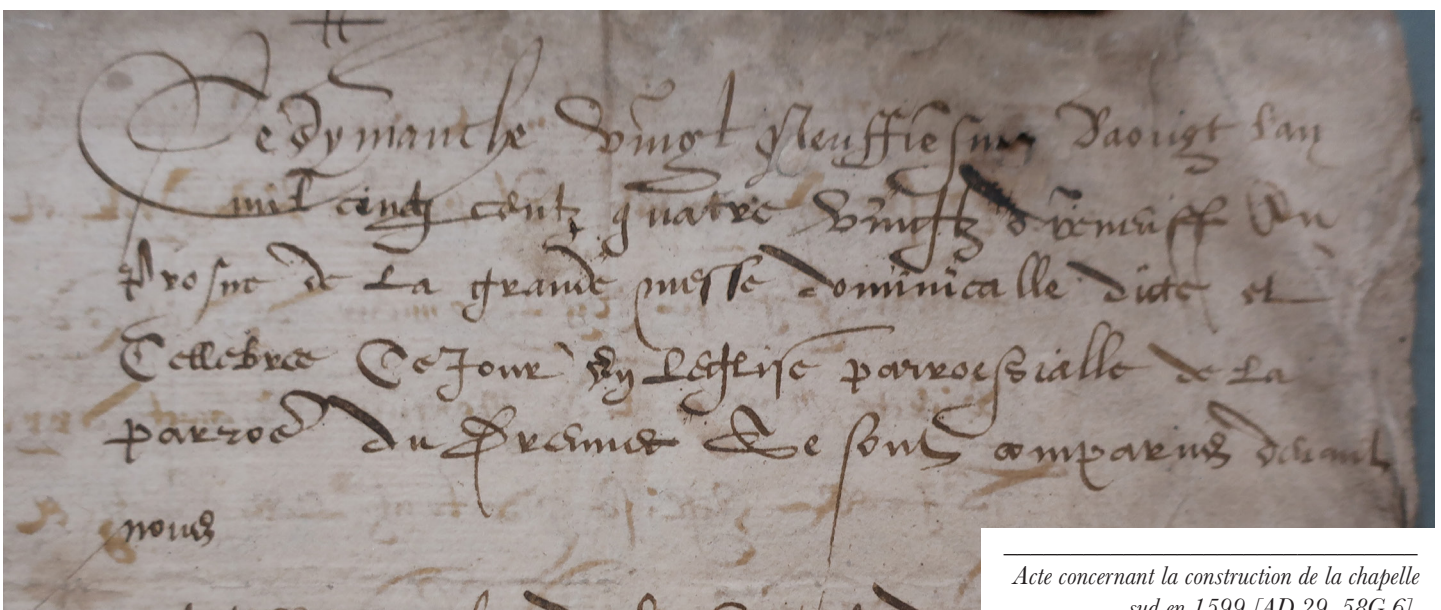 Ce dymanche vingt Neuffiesme Daougt lan
mil cincq centz quatre vingtz dixneuff Au
Prosne de La grande messe dominicalle dicte et
Cellebree Ce Jour En Leglise parroessialle de La
parroe du Drennec Se sont comparus davant
nous
Acte concernant la construction de la chapelle
sud en 1599 [AD 29, 58G 6]